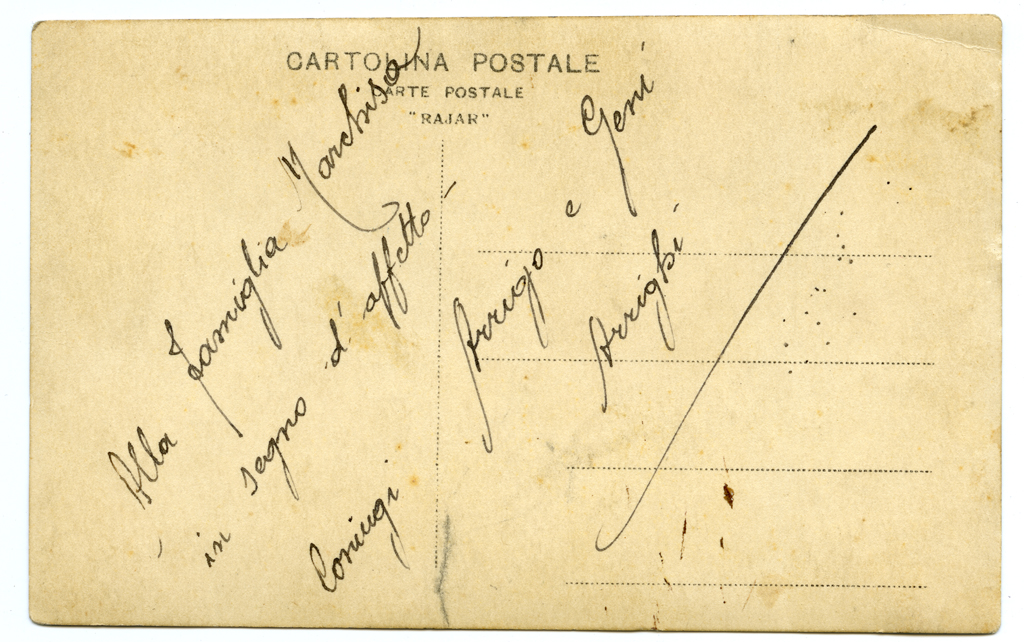 CARTOLINA POSTALE
CARTE POSTALE
"RAJAR"
Alla famiglia Marchisa
in segno d'affetto
Coniugi Arrigo e Geni
Arrighi